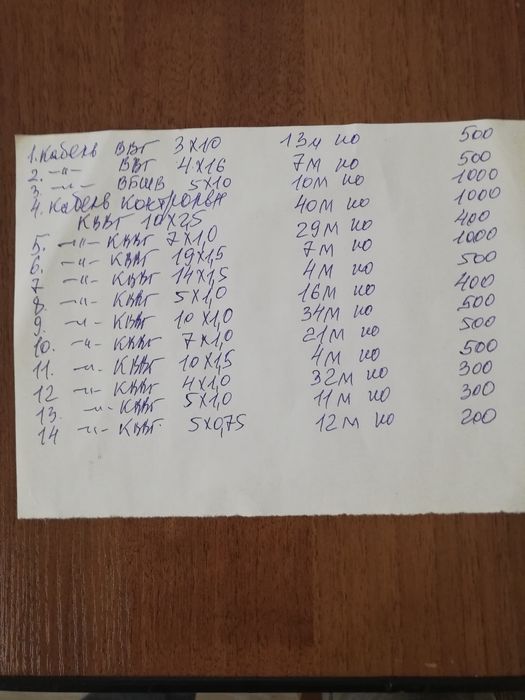 1. Кабель ВВГ 3х10 13м по 500
2. -"- ВВГ 4х16 7м по 500
3. -"- ВБШВ 5х10 10м по 1000
4. Кабель контрольн
КВВГ 10х2,5 40м по 1000
5. -"- КВВГ 7х1,0 29м по 400
6. -"- КВВГ 19х1,5 7м по 1000
7 -"- КВВГ 14х1,5 4м по 500
8. -"- КВВГ 5х1,0 16м по 400
9. -"- КВВГ 10х1,0 34м по 500
10. -"- КВВГ 7х1,0 21м по 500
11. -"- КВВГ 10х1,5 4м по 500
12 -"- КВВГ 4х1,0 32м по 300
13. -"- КВВГ 5х1,0 11м по 300
14 -"- КВВГ. 5х0,75 12м по 200